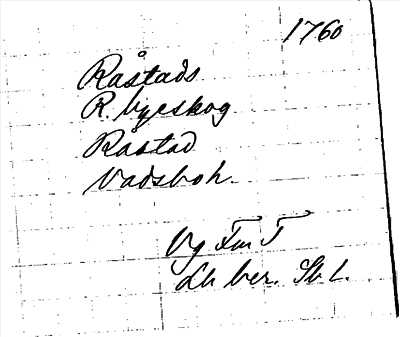 1760
Råstads
R. byeskog
Råstad
Vadsboh.
Vg Fm T
Lb ber. Sb l.